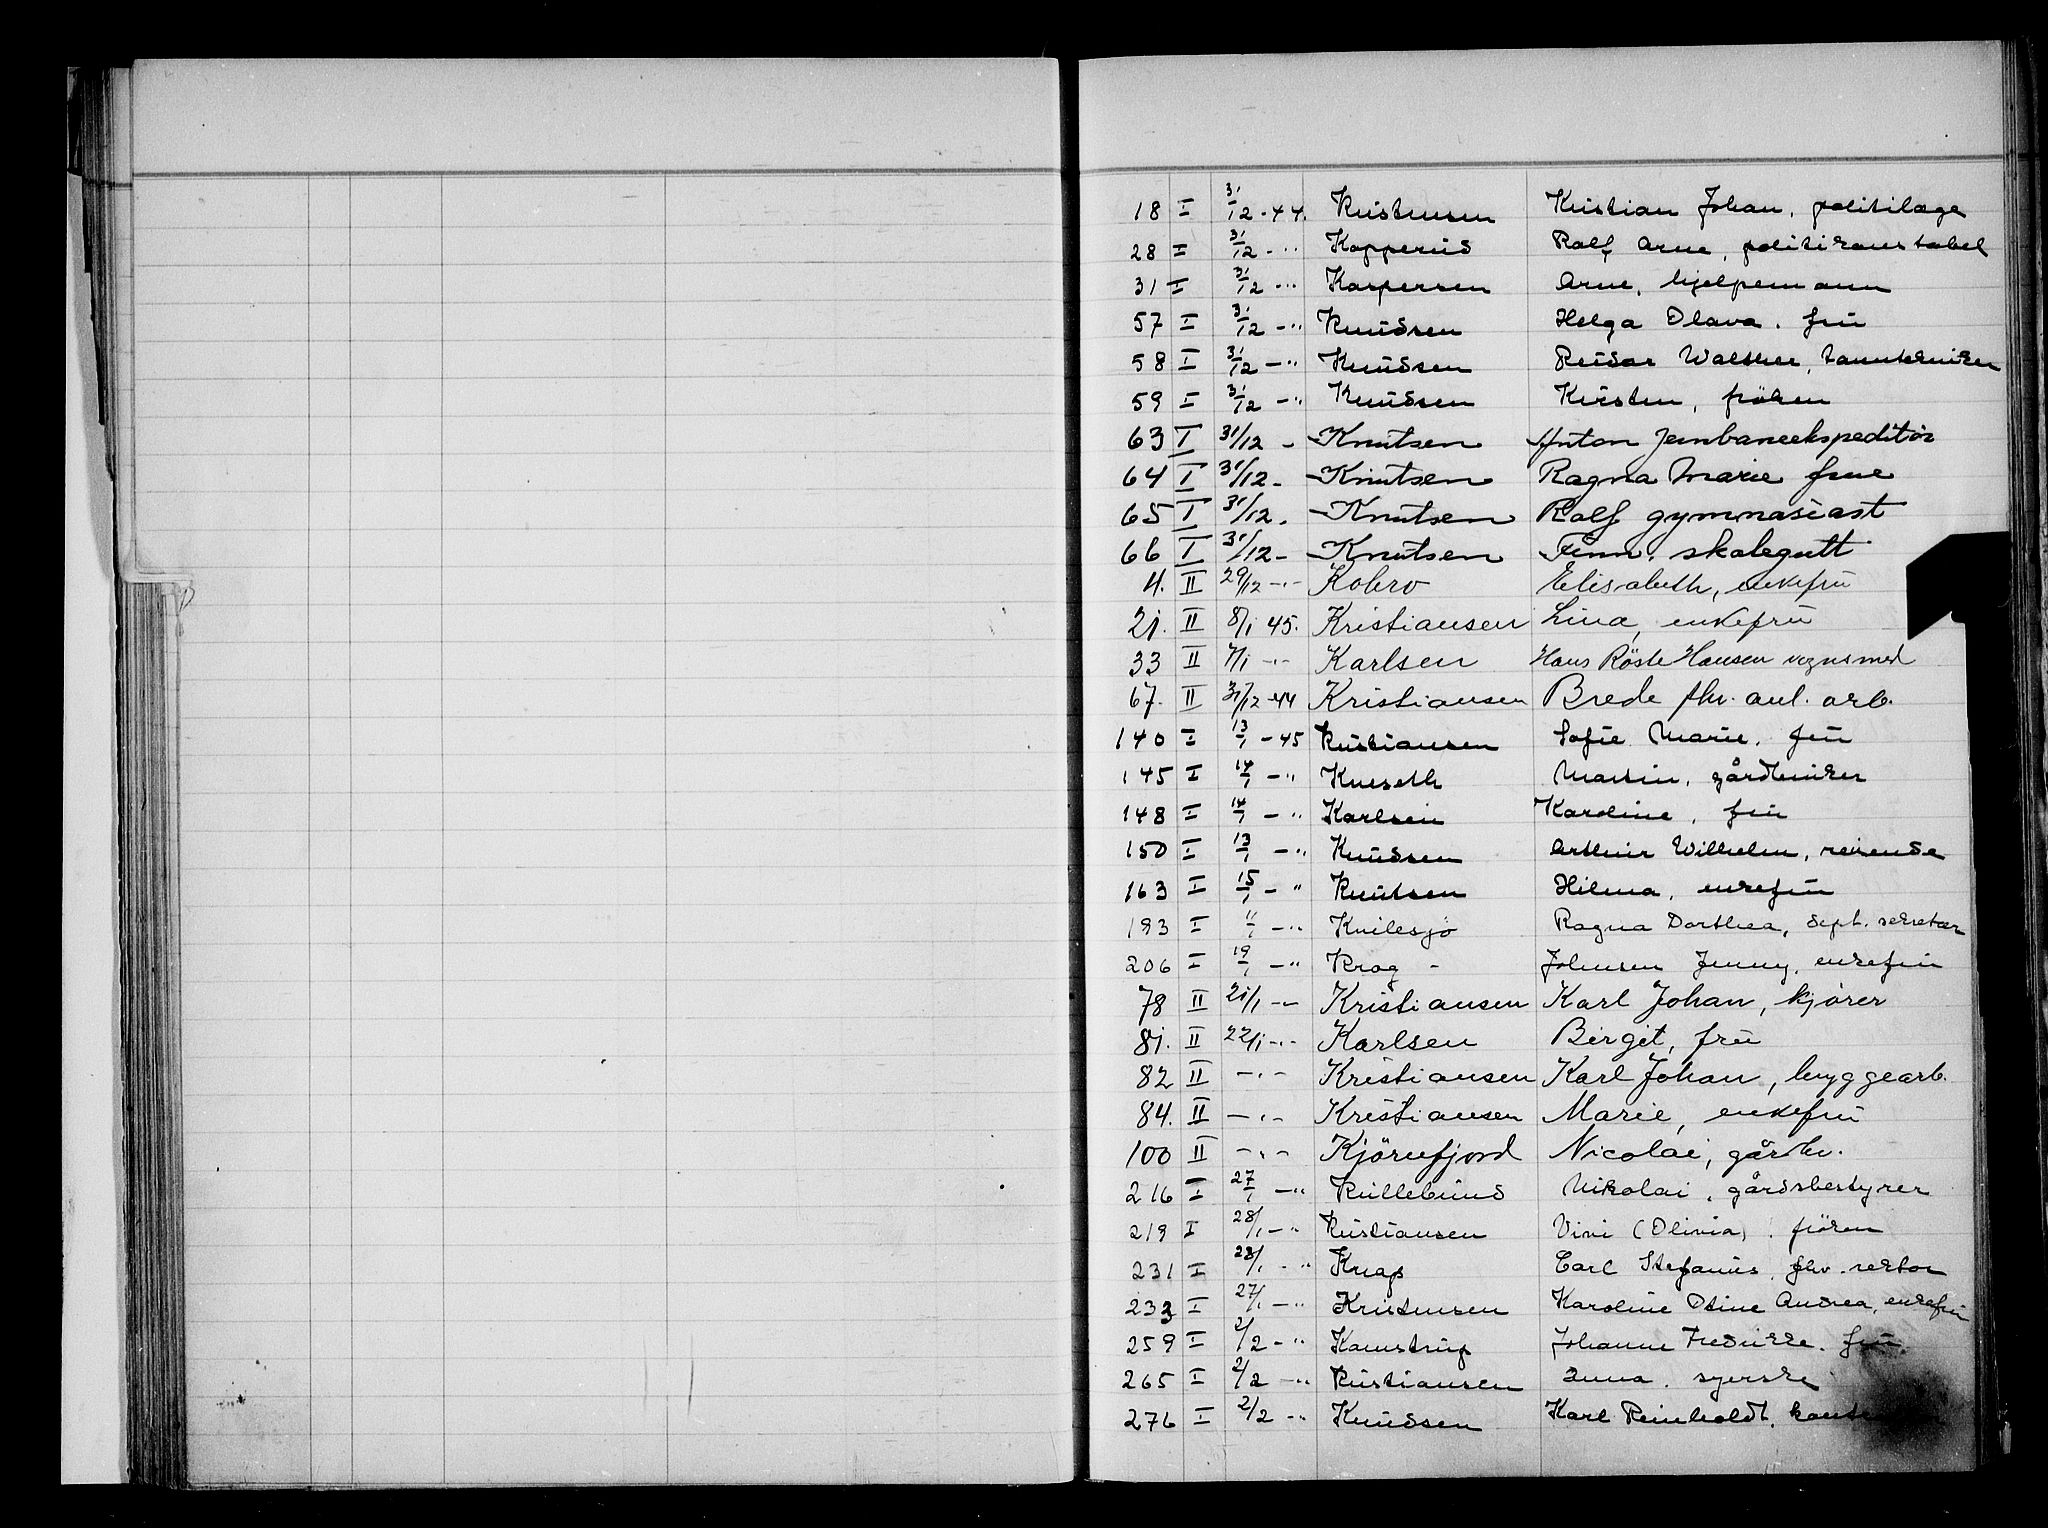 18 I 31/12 -44. Kristensen Kristian Johan, politilæge
28 I 31/12 - " Kopperud Rolf Arne, politikonstabel
31 I 31/12 - " Kaspersen Arne, hjelpemann
57 I 31/12 - " Knudsen Helga Olava, fru
58 I 31/12 - " Knudsen Reidar Walther, tanntekniker
59 I 31/12 - " Knudsen Kirsten, fröken
63 I 31/12 - Knutsen Anton Jernbaneekspeditör
64 I 31/12 - Knutsen Ragna Marie frue
65 I 31/12 - Knutsen Rolf gymnasiast
66 I 31/12 - Knutsen Finn, skolegutt
4. II 29/12 -"- Kobro Elisabeth, enkefru
21. II 8/1 45. Kristiansen Lina, enkefru
33 II 7/1 -"- Karlsen Hans Röste Hansen vognsmed
67. II 31/12 -44 Kristiansen Brede fhv. anl. arb.
140 I 13/1 -45 Kristiansen Sofie Marie, fru
145 I 14/1 - " Kneseth Martin, gårdbruker
148 I 14/1 - " Karlsen Karoline, fru
150 I 13/1 - " Knudsen Arthur Wilhelm, reisende
163 I 15/1 - " Knutsen Hilma, enkefru
193 I 11/1 - " Kvilesjö Ragna Dorthea, dept. sekretær
206 I 19/1 - " Krog - Johnsen Jenny, enkefru
78 II 21/1 -"- Kristiansen Karl Johan, kjører
81. II 22/1 -"- Karlsen Birgit, fru
82 II -"- Kristiansen Karl Johan, byggearb.
84. II -"- Kristiansen Marie, enkefru
100 II -"- Kjörrefjord Nicolai, gårdbr.
216 I 27/1 - " Kullebund Nikolai, gårdsbestyrer
219 I 28/1 - " Kristiansen Vivi (Olivia), fröken
231 I 28/1 - " Knap Carl Stefanus, fhv. rektor
233 I 27/1 - " Kristensen Karoline Otine Andrea, enkefru
259 I 2/2 - " Kamstrup Johanne Fredrikke, fru
265 I 2/2 - " Kristiansen Anna, syerske
276 I 2/2 - " Knudsen Karl Reinholdt,